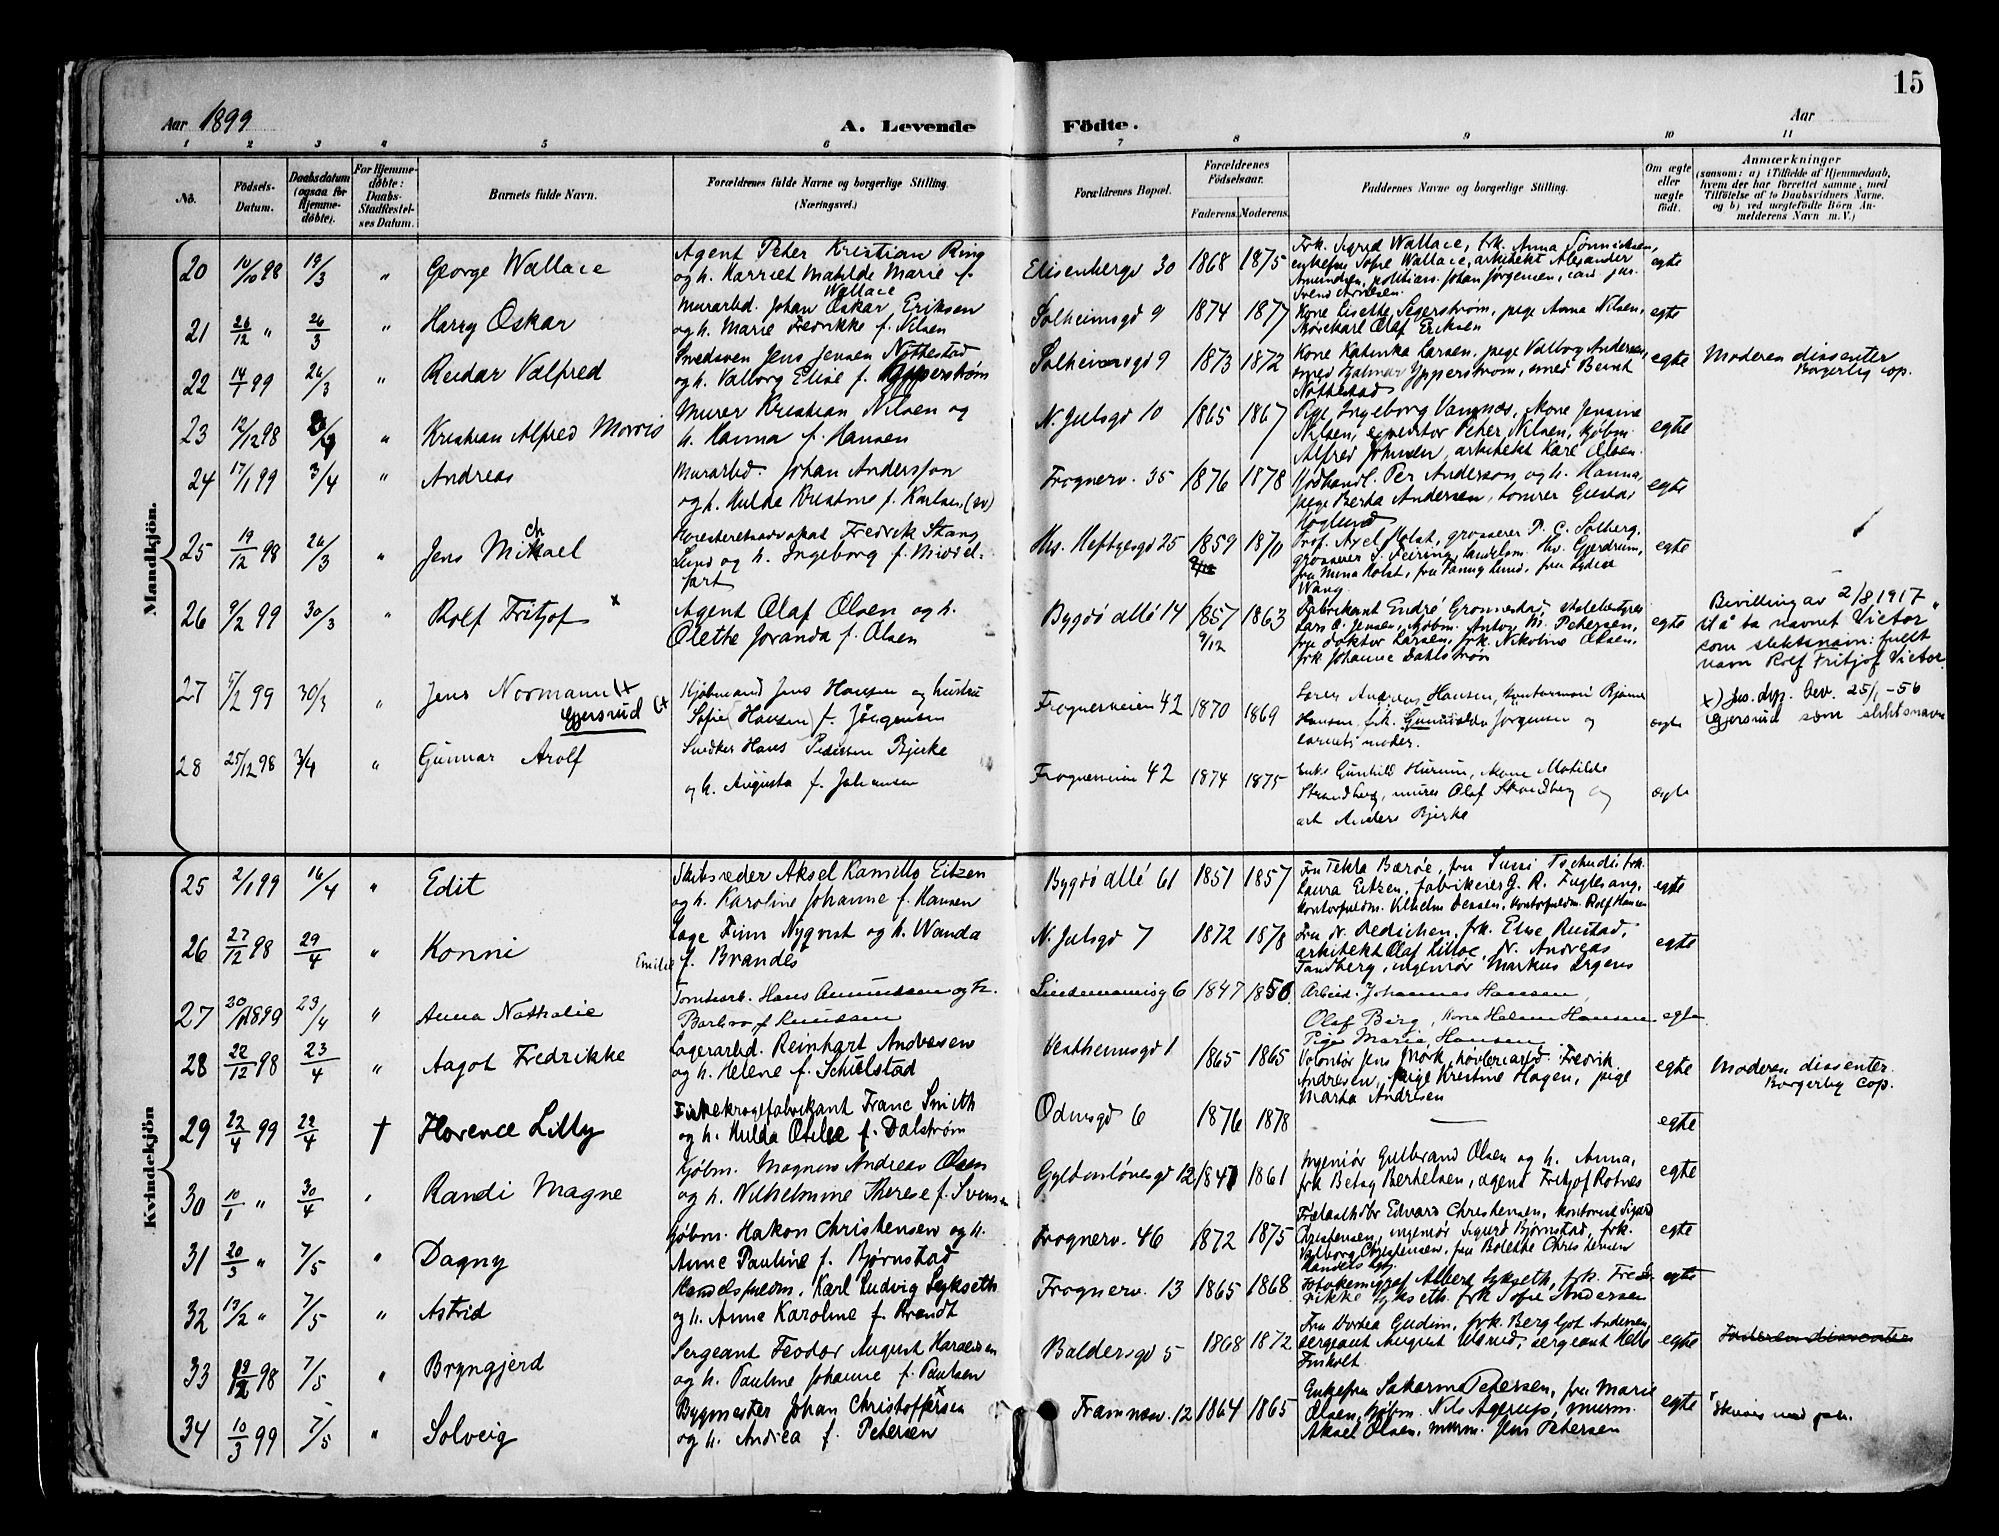 15
Aar 1899
A. Levende
Födte.
Aar
1 2 3 4 5 6 7 8 9 10 11
No.
Födsels-Datum.
Daabsdatum (ogsaa for Hjemme-döbte).
For Hjemme-döbte: Daabs-Stadfæstelses Datum.
Barnets fulde Navn.
Forældrenes fulde Navne og borgerlige Stilling. (Næringsvei.)
Forældrenes Bopæl.
Forældrenes Födselsaar.
Faderens. Moderens.
Faddernes Navne og borgerlige Stilling.
Om ægte eller uægte födt.
Anmærkninger
(saasom: a) i Tilfælde af Hjemmedaab, hvem der har forrettet samme, med Tilföielse af to Daabsvidners Navne, og b) ved uægtefödte Börn Anmelderens Navn m. V.)
Mandkjön.
20 10/10 98 19/3 " George Wallace
Agent Peter Kristian Ring
og h. Harriet Matilde Marie f.
Wallace
Elisenbergv 30 1868 1875
Frk. Sigrid Wallace, frk. Anna Sönnichsen,
enkefru Sofie Wallace, arkitekt Alexander
Amundsen, politiass. Johan Jørgensen, cand. jur.
Svend Arntzen.
egte
21 26/12 " 26/3 " Harry Oskar
Murarbd. Johan Oskar Eriksen
og h. Marie Fredrikke f. Nilsen
Solheimsgd 9 1874 1877
Kone Lisette Segerstrøm, pige Anna Nilsen,
Kjørekarl Olaf Eriksen
egte
22 14/1 99 26/3 " Reidar Valfred
Smedsven Jens Jensen Nøttestad
og h. Valborg Elise f. Ypperstrøm
Solheimsgd 9 1873 1872
Kone Katinka Larsen, pige Valborg Andersen,
smed Hjalmar Ypperstrøm, smed Bernt
Nøttestad
egte
Moderen dissenter
Borgerlig cop.
23 12/12 98 3/4 " Kristian Alfred Morris
Murer Kristian Nilsen og
h. Hanna f. Hansen
N. Julsgd 10 1865 1867
Pige Ingeborg Vannæs, kone Jensine
Nilsen, expeditør Peter Nilsen, kjøbm.
Alfred Johnsen, arkitekt Kare Olsen.
egte
24 17/1 99 3/4 " Andreas
Murarbd. Johan Andersson
og h. Hulda Kristine f. Karlsen (sv)
Frognerv. 35 1876 1878
Vedhandl. Per Anderson og h. Hanna,
pige Berta Andersen, tømrer Gustav
Höglund
egte
25 19/12 98 26/3 " Jens Michael
Høiesteretsadvokat Fredrik Stang
Lund og h. Ingeborg f. Middel-
fart
Ths. Heftyesgd 25 1859 1870
Prof. Axel Holst, grosserer P. C. Solberg,
grosserer S. Feiring, landelsm. Ths. Gjerdrum,
fru Mina Holst, fru Fanny Lund, fru Lydia
Wang
egte
26 9/2 99 30/3 " Rolf Fritjof x
Agent Olaf Olsen og h.
Olethe Joranda f. Olsen
Bygdö allé 14 1857 1863
9/12
Fabrikant Endré Grønnestad, skolebestyrer
Lars O. Jensen, kjøbm. Anton M. Petersen,
fru doktor Larsen, frk. Nikoline Olsen,
frk Johanne Dahlstrøm
egte
Bevilling av 2/8 1917
til å ta navnet Victor
som slektsnavn: fuldt
navn Rolf Fritjof Victor.
27 5/2 99 30/3 " Jens Normann (x
Gjersrud (x
Kjøbmand Jens Hansen og hustru
Sofie (Hansen) f. Jörgensen
Frognerveien 42 1870 1869
Søren Andreas Hansen, kontormand Bjarne
Hansen, frk. Gunvalda Jørgensen og
barnets moder.
ægte
x) Jus. dep. bev. 25/1-56
Gjersrud som slektsnavn
28 25/12 98 3/4 " Gunnar Arolf
Snedker Hans Pedersen Bjerke
og h. Augusta f. Johansen
Frognerveien 42 1874 1875
Enke Gunhild Hurum, kone Matilde
Strandberg, murer Olaf Strandberg og
arb Anders Bjerke
ægte
Kvindekjön
25 2/1 99 16/4 " Edit
Skibsreder Aksel Kamillo Eitzen
og h. Karoline Johanne f. Hansen
Bygdö allé 61 1851 1857
Fru Tekla Barøe, fru Sussi Tschudi, frk.
Laura Eitzen, fabrikeier G. R. Fuglesang,
kontorfuldm. Vilhelm Jessen, kontorfuldm. Rolf Hansen
egte
26 27/12 98 29/4 " Konni
Læge Finn Nyqvist og h. Wanda
Emilie f. Brandes
N. Julsgd 7 1872 1878
Fru N. Dedichen, frk. Else Rustad,
arkitekt Olaf Lilloe, N. Andreas
Tandberg, ingeniør Markus Irgens
egte
27 20/1 1899 23/4 " Anna Nathalie
Tomtearb. Hans Amundsen og h.
Barbro f. Knudsen
Lindemannsg 6 1847 1856
Arbeid. Johannes Hansen,
Olaf Berg, Kone Helene Hansen
Pige Marie Hansen
egte
28 22/12 98 23/4 " Aagot Fredrikke
Lagerarbd. Reinhart Andresen
og h. Helene f. Schulstad
Vestheimsgd 1 1865 1865
Volontør Jens Mørk, høvleriarbd. Fredrik
Andresen, pige Kristine Hagen, pige
Marta Andresen
egte
Moderen dissenter.
Borgerlig cop.
29 22/4 99 22/4 † Florence Lilly
Fiskekrogfabrikant Franc Smith
og h. Hulda Otilie f. Dalstrøm
Odinsgd 6 1876 1878 — egte
30 10/1 " 30/4 " Randi Magne
Kjøbm. Magnus Andreas Olsen
og h. Wilhelmine Therese f. Svensen
Gyldenløvesgd 12 1841 1861
Ingeniør Gulbrand Olsen og h. Anna,
frk Betsy Berthelsen, agent Fritjof Rotnes
egte
31 20/3 " 7/5 " Dagny
Kjøbm. Hakon Christensen og h.
Anne Pauline f. Bjørnstad
Frognerv. 46 1872 1875
Edvard Christensen, kontorist Sigurd
Christensen, ingeniør Sigurd Bjørnstad, frk.
Valborg Christensen, fru Bolette Christensen
egte
32 13/2 " 7/5 " Astrid
Handelsfuldm. Karl Ludvig Sykseth
og h. Anne Karoline f. Brandt
Frognerv. 13 1865 1868
Fotokemigraf Albert Sykseth, frk. Fred-
rikke Sykseth, frk Sofie Andersen
egte
33 19/12 98 7/5 " Bryngjerd
Sergeant Feodor August Haraldsen
og h. Pauline Johanne f. Paulsen
Baldersgd 5 1868 1872
Fru Dortea Gudim, frk. Bergljot Andersen,
sergeant August Ulsrud, sergeant Helge
Finholt.
egte
Faderen dissenter
34 10/3 99 7/5 " Solveig
Bygmester Johan Christoffersen x
og h. Andrea f. Petersen
Framnæsv. 12 1864 1865
Enkefru Sakarine Petersen, fru Marie
Olsen, kjøbm. Nils Agerup, murm.
Aksel Olsen, murm. Jens Petersen
egte
x Skrives med